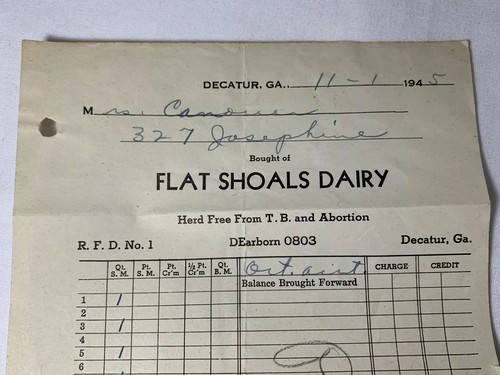 DECATUR, GA., 11-1 1945
Mrs.
327 Josephine
Bought of
FLAT SHOALS DAIRY
Herd Free From T.B. and Abortion
R. F. D. No. 1 DEarborn 0803 Decatur, Ga.
Qt. S. M. Pt. S. M. Pt. Cr'm ½ Pt. Cr'm Qt. B. M. Oct. Balance Brought Forward CHARGE CREDIT
1 1
2
3 1
4
5 1
6